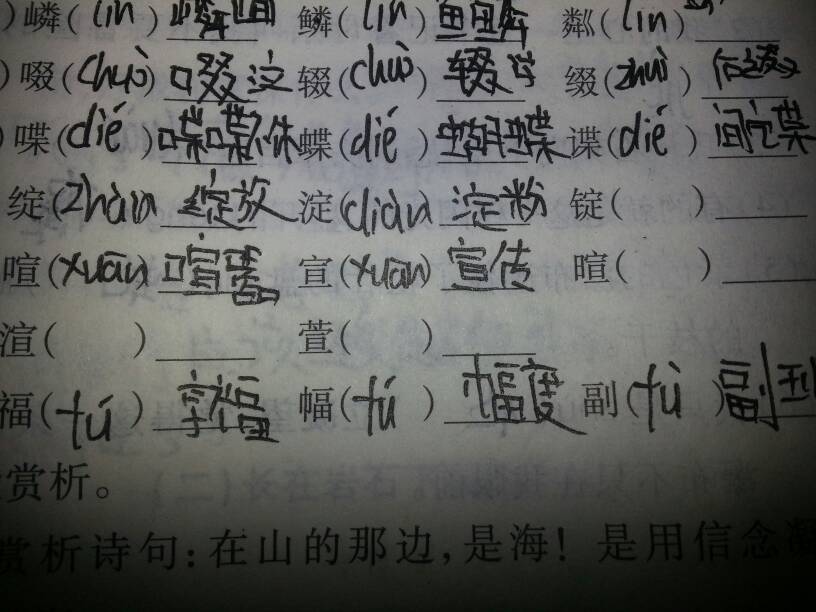 )嶙(lín) 嶙峋 鳞(lín) 粼(lín)
)啜(chuò) 啜泣 辍(chuò) 辍学 缀(zhuì) 点缀
)喋(dié) 喋喋不休 蝶(dié) 蝴蝶 谍(dié) 间谍
绽(zhàn) 绽放 淀(diàn) 淀粉 锭( )
喧(xuān) 喧嚣 宣(xuān) 宣传 暄( )
渲( ) 萱( )
福(fú) 幸福 幅(fú) 幅度 副(fù) 副
赏析。
赏析诗句:在山的那边,是海!是用信念凝